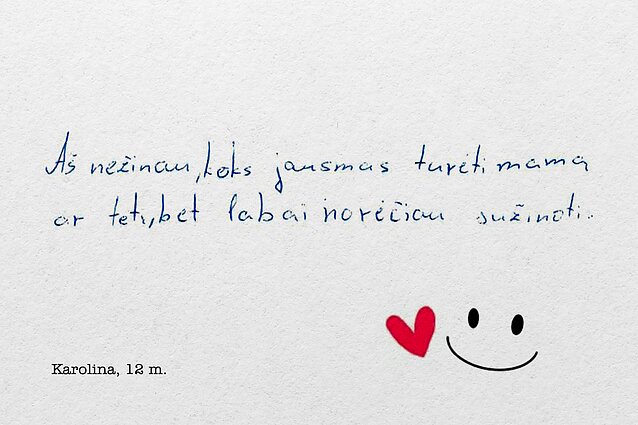 Aš nežinau, koks jausmas turėti mamą
ar tetį, bet labai norėčiau sužinoti.
Karolina, 12 m.